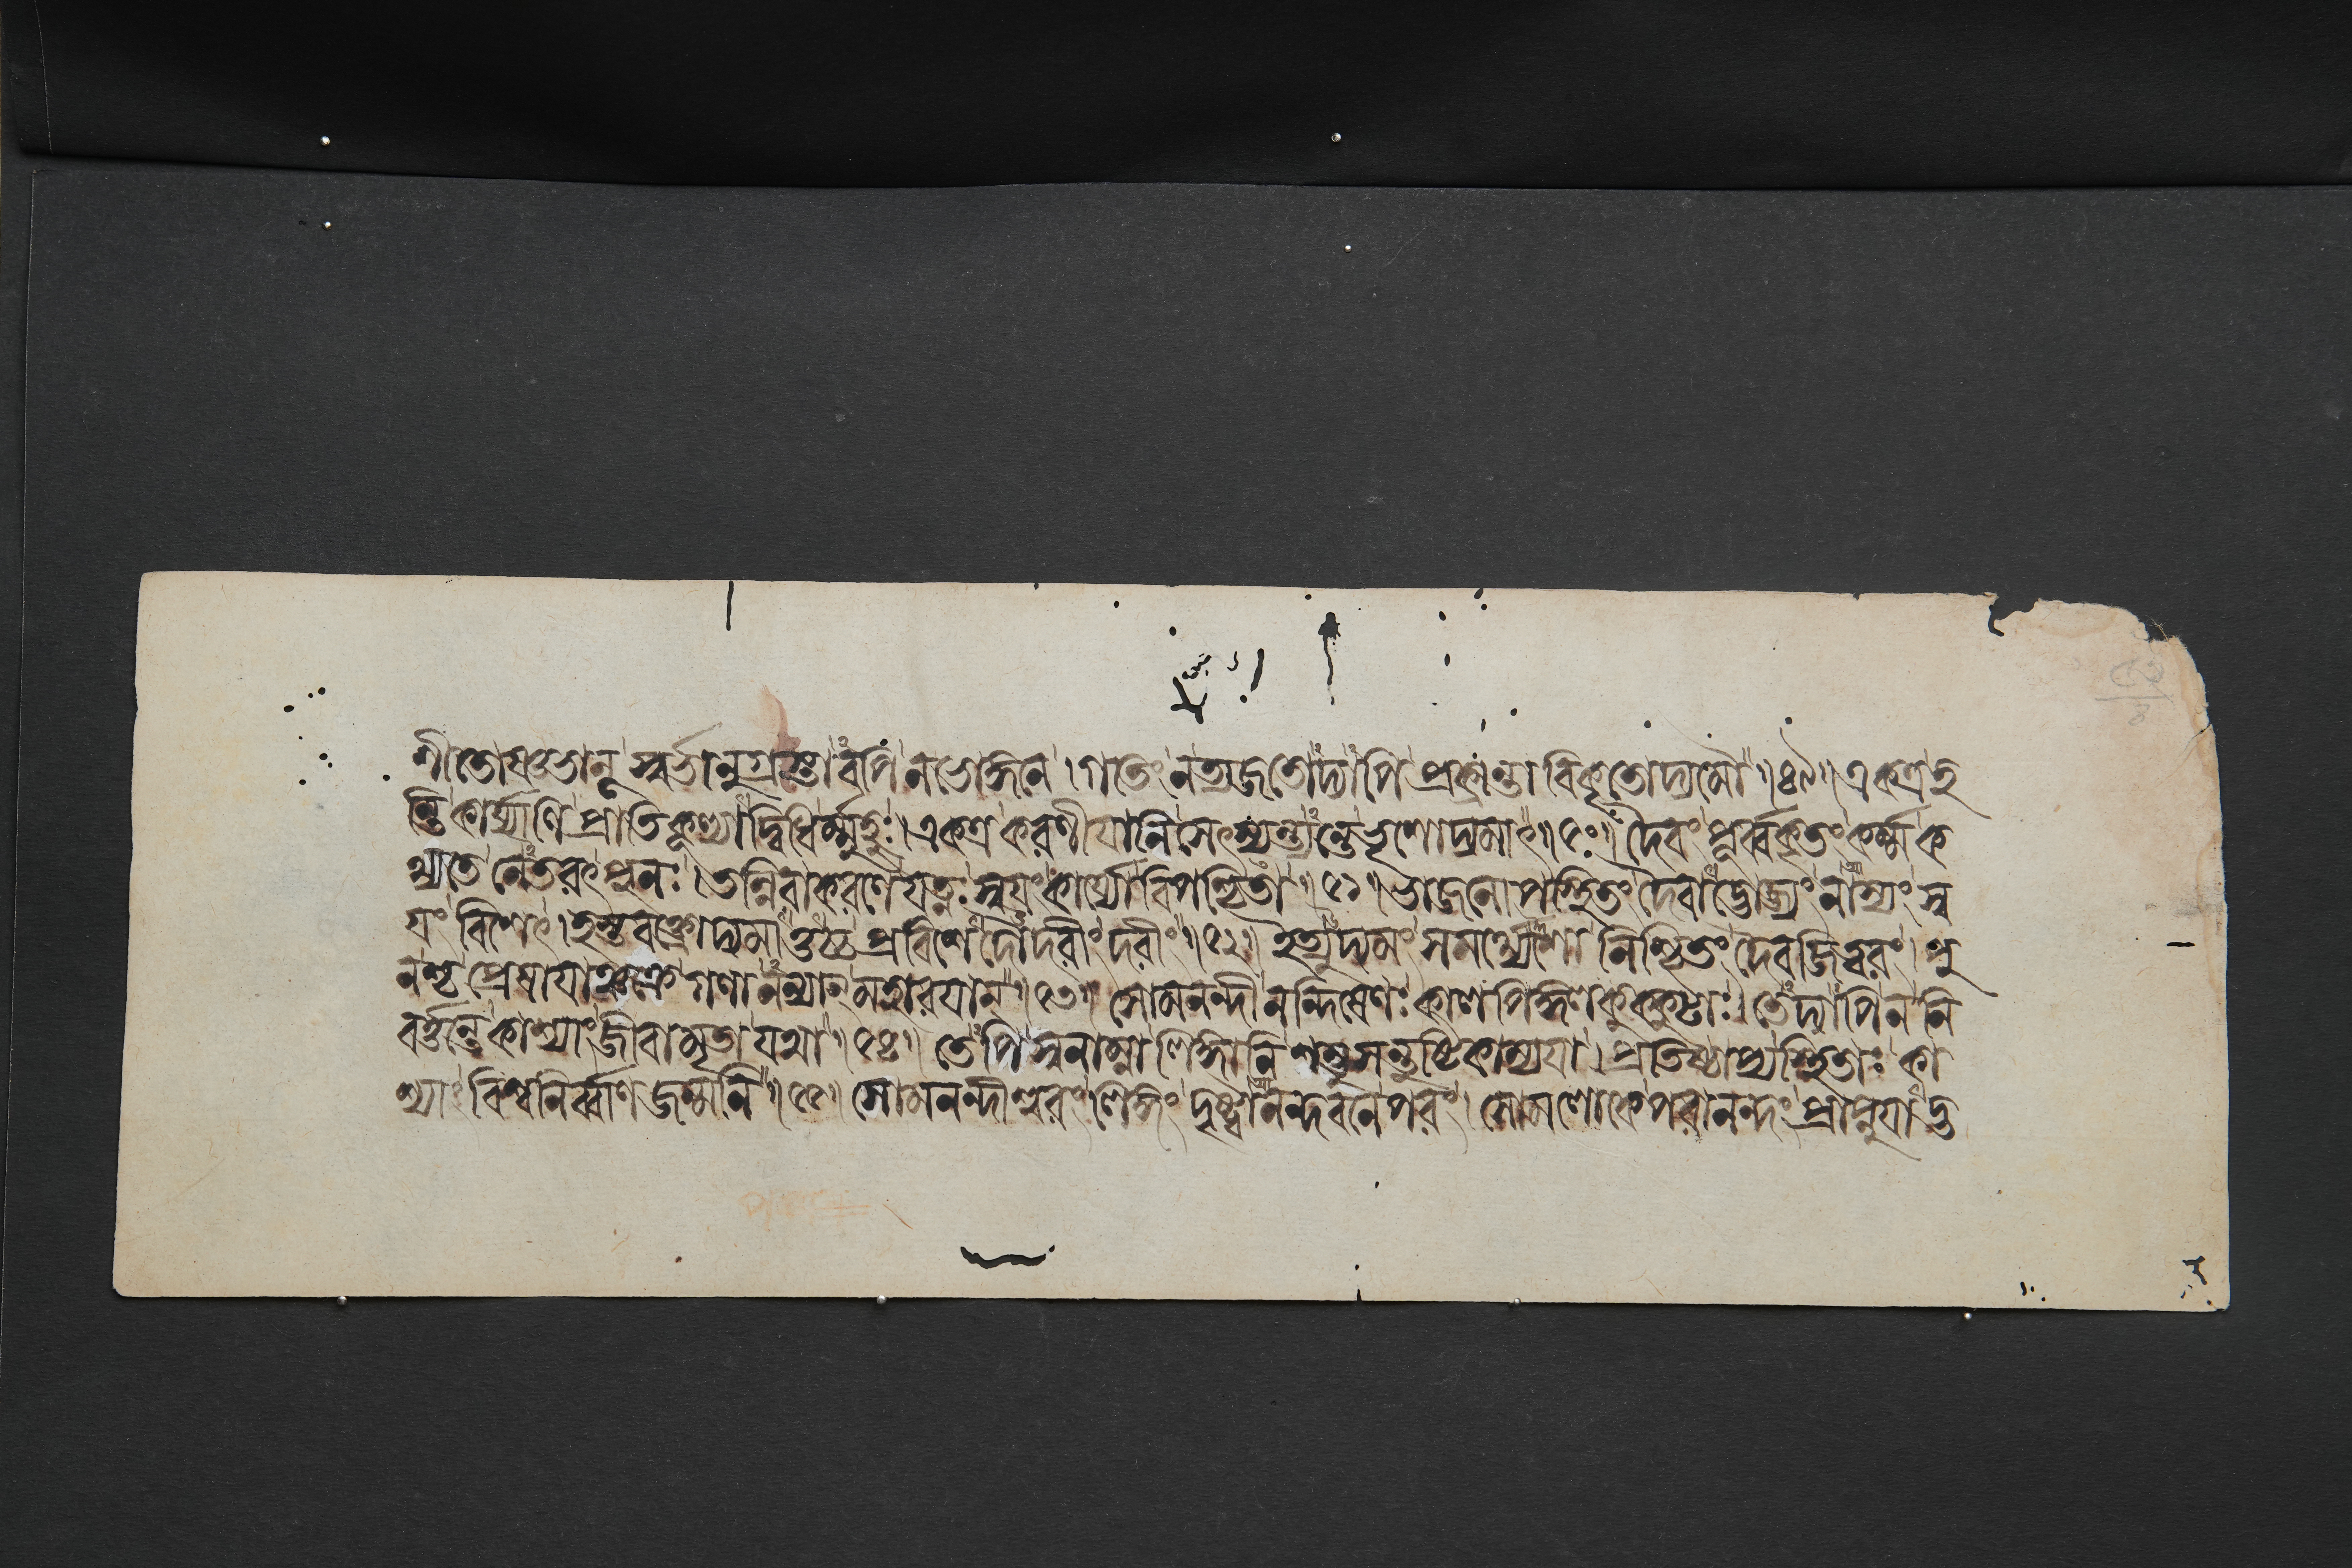 শীতোষ্ণভানূ স্বর্ভানুগ্রস্তাবপি নভোঙ্গনে । গতিং ন ত্যজতোদ্যাপি প্রক্রান্তা বিকৃতোদ্যমৌ ॥৪৯॥ একত্র হ
ন্তি কার্য্যাণি প্রাতিকূল্যাদ্বিধির্ম্মুহুঃ । একত্র করণীযানি সেৎস্যন্ত্যন্তে ভৃশোদ্যমাৎ ॥৫০॥ দৈবং পূর্ব্বকৃতং কর্ম্ম ক
থ্যতে নেতরৎ পুনঃ । তন্নিরাকরণে যত্নঃ স্বযং কার্য্যো বিপশ্চিতা ॥৫১॥ ভাজনোপস্থিতং দৈবাদ্ভোজ্যং নাস্যং স্ব
যং বিশেৎ । হস্তবক্ত্রোদ্যমাত্তচ্চ প্রবিশেদৌদরীং দরীং ॥৫২॥ ইত্যুদ্যমং সমর্থ্যেশো নিশ্চিতং দৈবজিত্বরং । পু
নশ্চ প্রেষযাঞ্চক্রে গণানন্যান্ মহারযান্ ॥৫৩॥ সোমনন্দী নন্দিষেণঃ কালপিঙ্গলকুক্কুটাঃ । তেদ্যাপি ন নি
বর্ত্তন্তে কাশ্যাং জীবা মৃতা যথা ॥৫৪॥ তেপি স্বনাম্না লিঙ্গানি শম্ভুসন্তুষ্টিকাম্যযা । প্রতিষ্ঠাপ্য স্থিতাঃ কা
শ্যাং বিশ্বনির্ব্বাণজন্মনি ॥৫৫॥ সোমনন্দীশ্বরং লিঙ্গং দৃষ্ট্বা নন্দবনে পরং । সোমলোকে পরানন্দং প্রাপ্নুযাদ্ভ